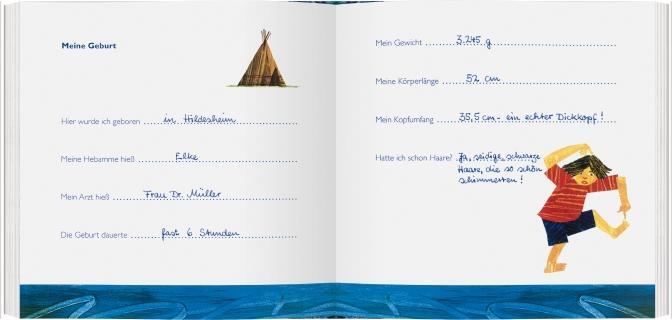 Meine Geburt
Hier wurde ich geboren in Hildesheim
Meine Hebamme hieß Elke
Mein Arzt hieß Frau Dr. Müller
Die Geburt dauerte fast 6 Stunden
Mein Gewicht 3.245 g
Meine Körperlänge 52 cm
Mein Kopfumfang 35,5 cm - ein echter Dickkopf!
Hatte ich schon Haare? Ja, seidige schwarze
Haare, die so schön
schimmerten!